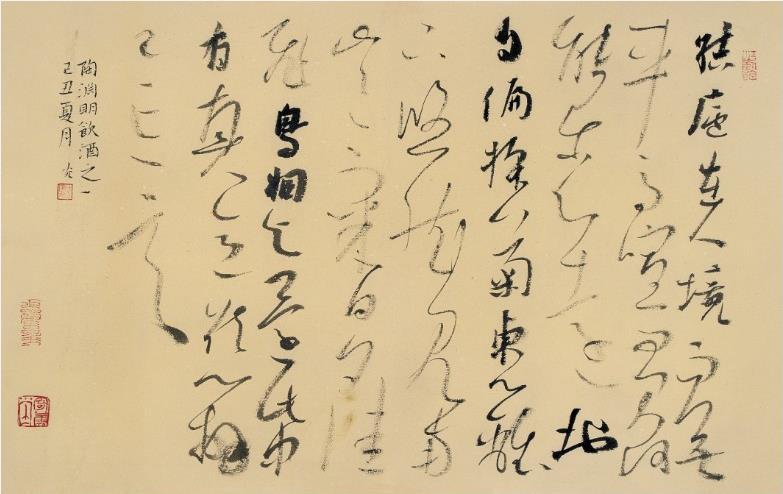 結廬在人境而無
車馬喧問君何
能爾心遠地
自偏採菊東籬
下悠然見南
山〻氣日夕佳
飛鳥相與還此中
有真意欲辨
已忘言
陶淵明飲酒之一
己丑夏月